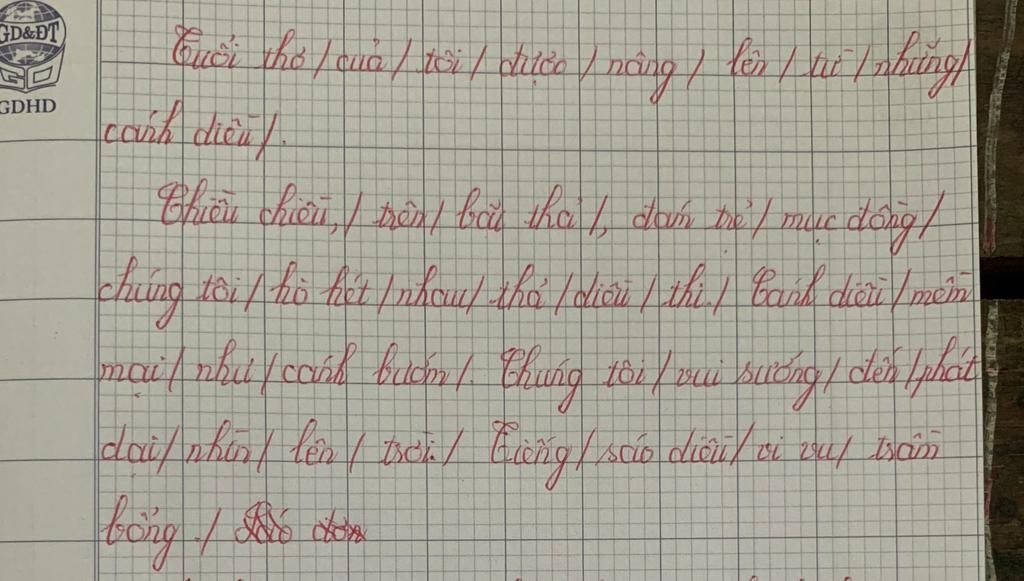 GD&ĐT
GDHD
Tuổi thơ / của / tôi / được / nâng / lên / từ / những /
cánh diều /.
Chiều chiều, / trên / bãi thả /, đám trẻ / mục đồng /
chúng tôi / hò hét / nhau / thả / diều / thi. / Cánh diều / mềm
mại / như / cánh bướm /. Chúng tôi / vui sướng / đến / phát
dại / nhìn / lên / trời. / Tiếng / sáo diều / vi vu / trầm
bổng. /